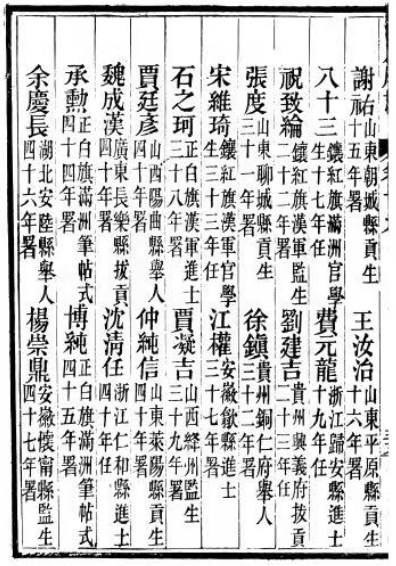 謝祐山東朝城縣貢生十五年署　王汝治山東平原縣貢生十六年署
八十三鑲紅旗滿洲官學生十七年任　費元龍浙江歸安縣進士十九年任
祝致綸鑲紅旗漢軍監生二十二年署　劉建吉貴州興義府拔貢二十三年任
張度山東聊城縣貢生三十一年署　徐鎮貴州銅仁府舉人三十二年署
宋維琦鑲紅旗漢軍官學生三十三年任　江權安徽歙縣進士三十七年任
石之珂正白旗漢軍進士三十八年署　賈凝吉山西絳州監生三十九年署
賈廷彥山西陽曲縣舉人四十年署　仲純信山東萊陽縣貢生四十年署
魏成漢廣東長樂縣拔貢四十年署　沈淸任浙江仁和縣進士四十年任
承勲正白旗滿洲筆帖式四十四年署　博純正白旗滿洲筆帖式四十五年署
余慶長湖北安陸縣舉人四十六年署　楊崇鼎安徽懷甯縣監生四十七年署